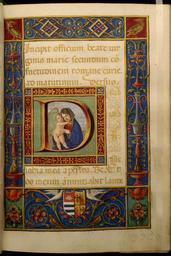 Incipit officium beate uir
ginis marie secundum co
suetudinem romane curie
ad matutinum. Versus.
D
labia mea aperies. Et
os meum annuntiabit laude